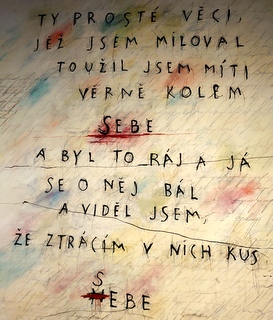 TY PROSTÉ VĚCI,
JEŽ JSEM MILOVAL
TOUŽIL JSEM MÍTI
VĚRNĚ KOLEM
SEBE
A BYL TO RÁJ A JÁ
SE O NĚJ BÁL
A VIDĚL JSEM,
ŽE ZTRÁCÍM V NICH KUS
S
EBE